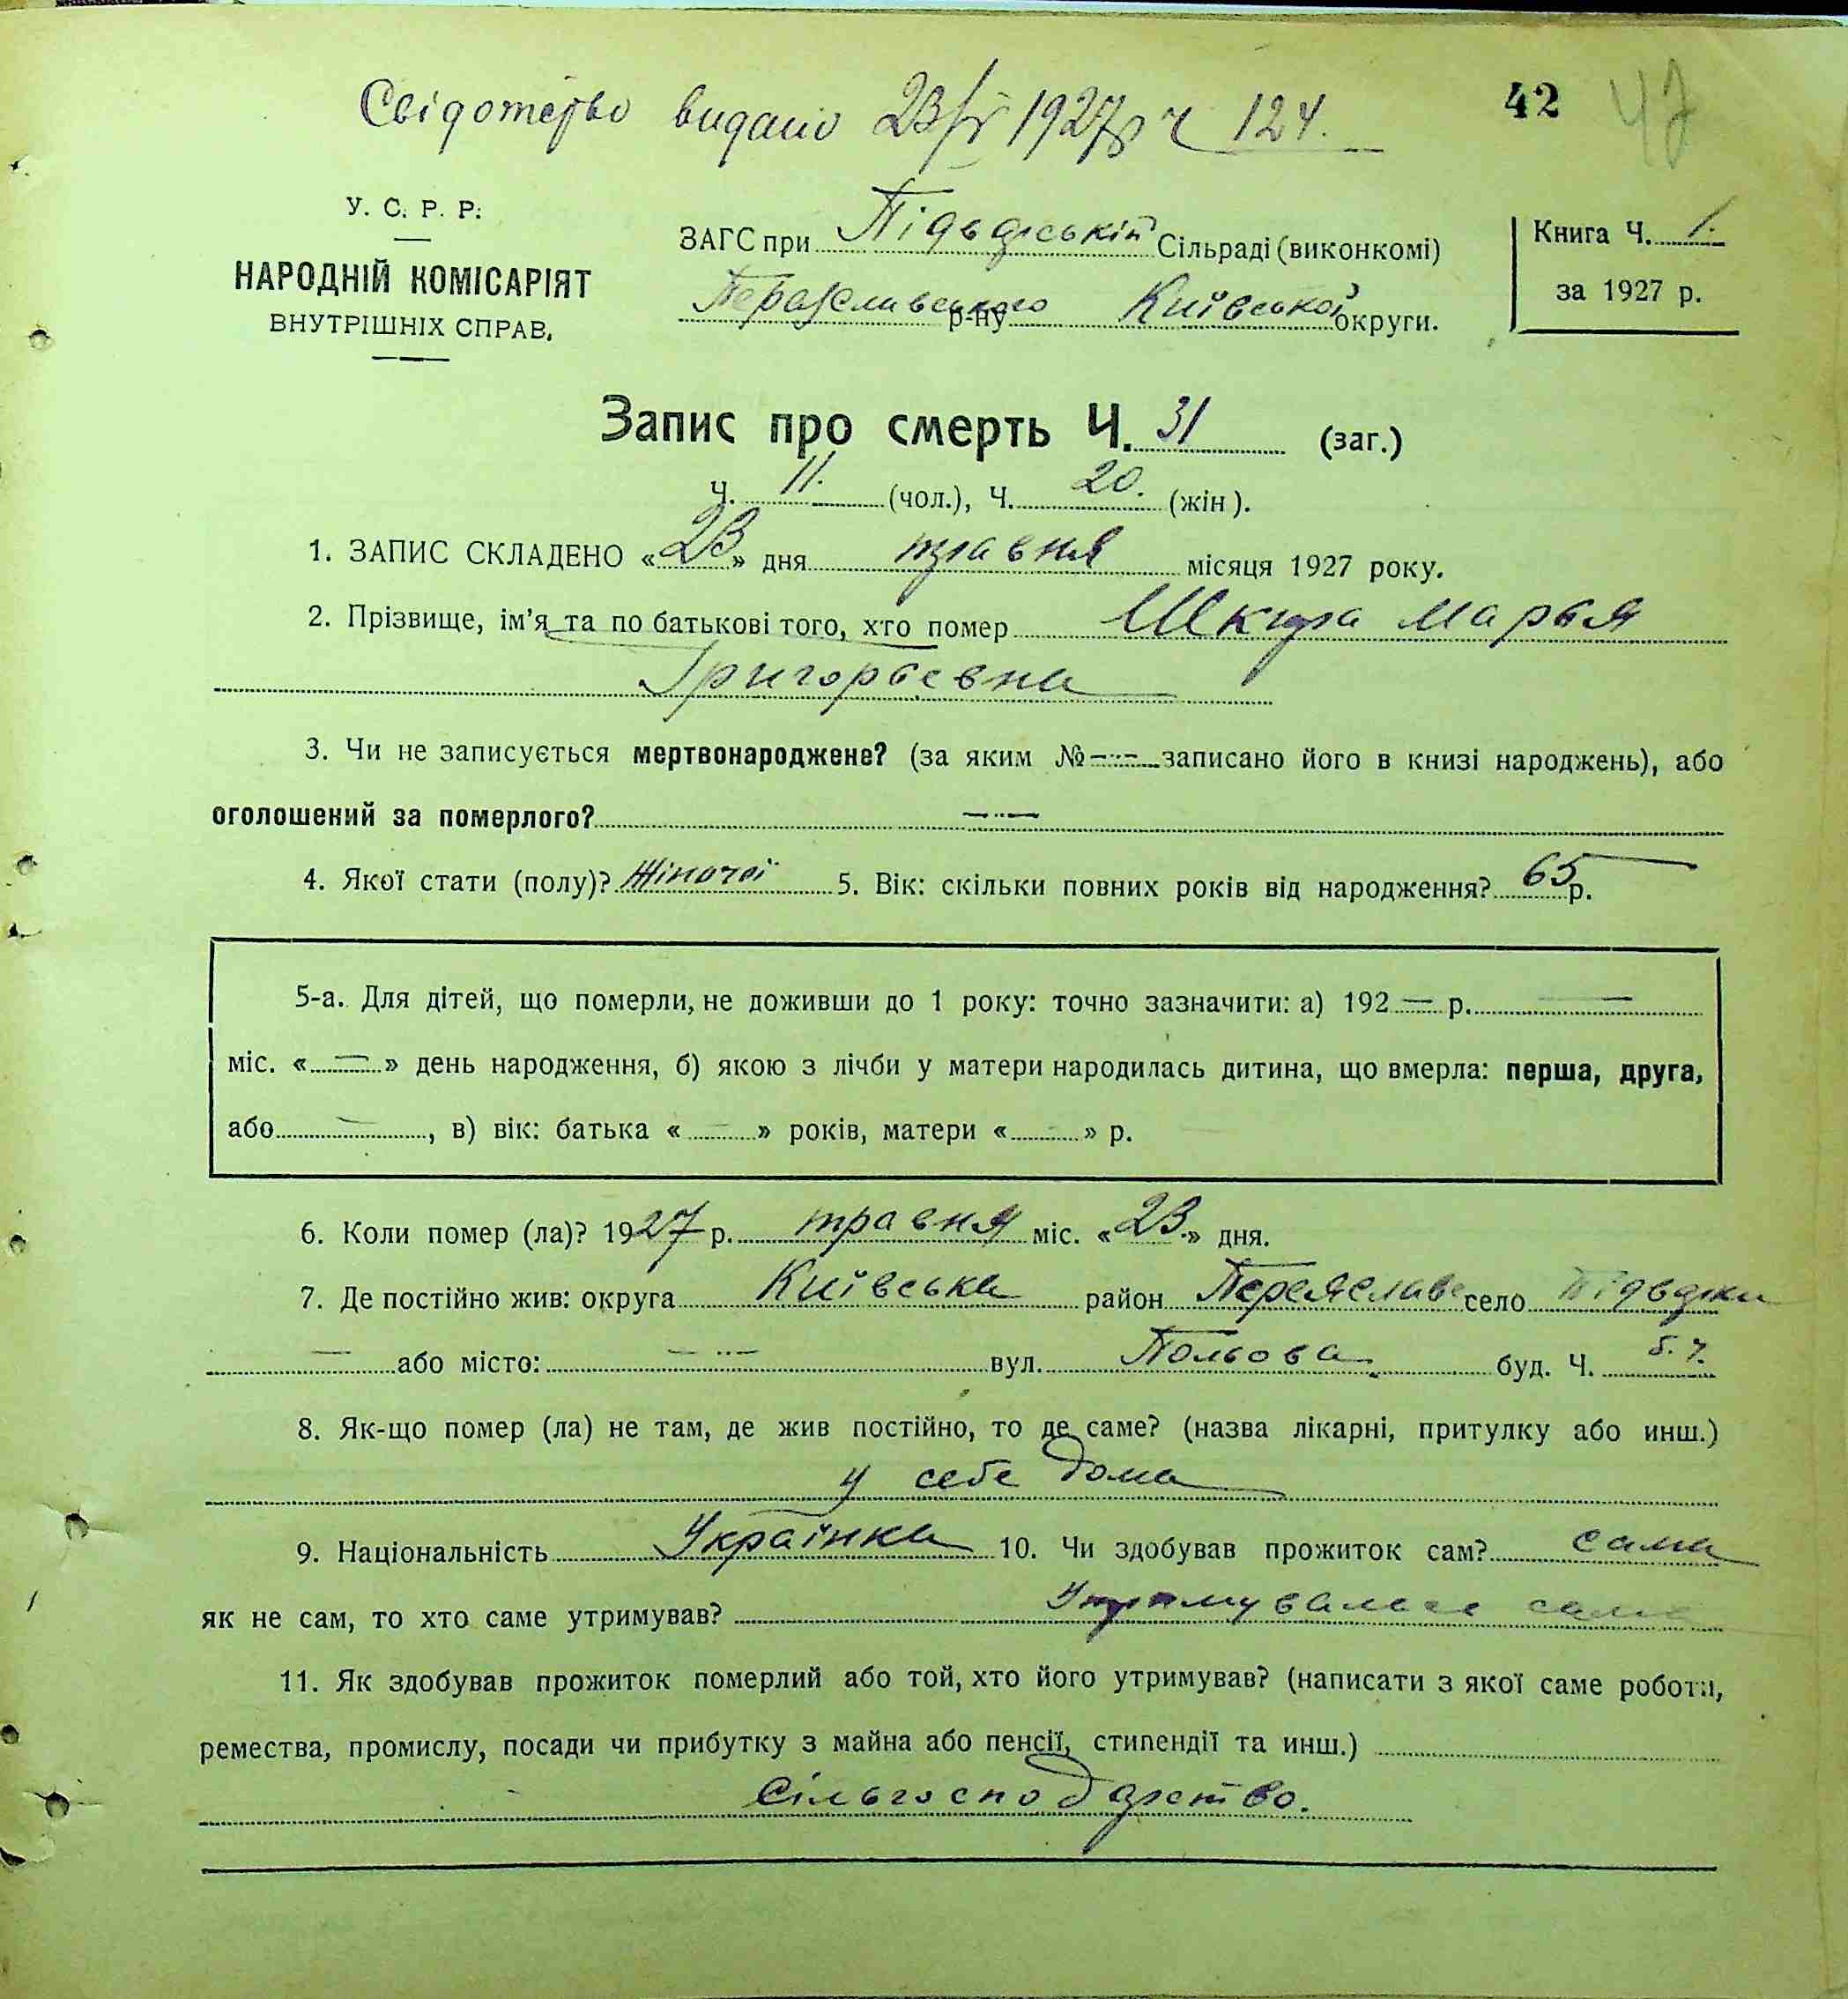 Свідотство видано 23/V 1927 р ч 124.
42 47
У. С. Р. Р.
НАРОДНІЙ КОМІСАРІЯТ
ВНУТРІШНІХ СПРАВ.
ЗАГС при Підварській Сільраді (виконкомі)
Переяславського р-ну Київської округи.
Книга Ч. 1.
за 1927 р.
Запис про смерть Ч. 31 (заг.)
Ч. 11. (чол.), Ч. 20. (жін).
1. ЗАПИС СКЛАДЕНО «23» дня травня місяця 1927 року.
2. Прізвище, ім'я та по батькові того, хто помер Шкура Марья
Григорьевна
3. Чи не записується мертвонароджене? (за яким № — записано його в книзі народжень), або
оголошений за померлого? —
4. Якої стати (полу)? Жіночої 5. Вік: скільки повних років від народження? 65 р.
5-а. Для дітей, що померли, не доживши до 1 року: точно зазначити: а) 192 — р. —
міс. « — » день народження, б) якою з лічби у матери народилась дитина, що вмерла: перша, друга,
або —, в) вік: батька « — » років, матери « — » р.
6. Коли помер (ла)? 1927 р. травня міс. «23.» дня.
7. Де постійно жив: округа Київська район Переяславс село Підварки
— або місто: — вул. Польова буд. Ч. б.ч.
8. Як-що помер (ла) не там, де жив постійно, то де саме? (назва лікарні, притулку або инш.)
у себе дома
9. Національність Українка 10. Чи здобував прожиток сам? сама
як не сам, то хто саме утримував? Утримувалась сама
11. Як здобував прожиток померлий або той, хто його утримував? (написати з якої саме роботи,
ремества, промислу, посади чи прибутку з майна або пенсії, стипендії та инш.)
Сільгосподарство.